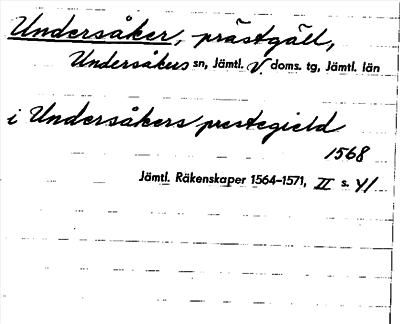 Undersåker, prästgäll,
Undersåkers sn, Jämtl. V. doms. tg, Jämtl. län
i Undersåkers prestegield
1568
Jämtl. Räkenskaper 1564-1571, II s. 41